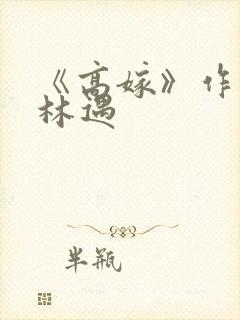 《高嫁》作
林遇
半瓶